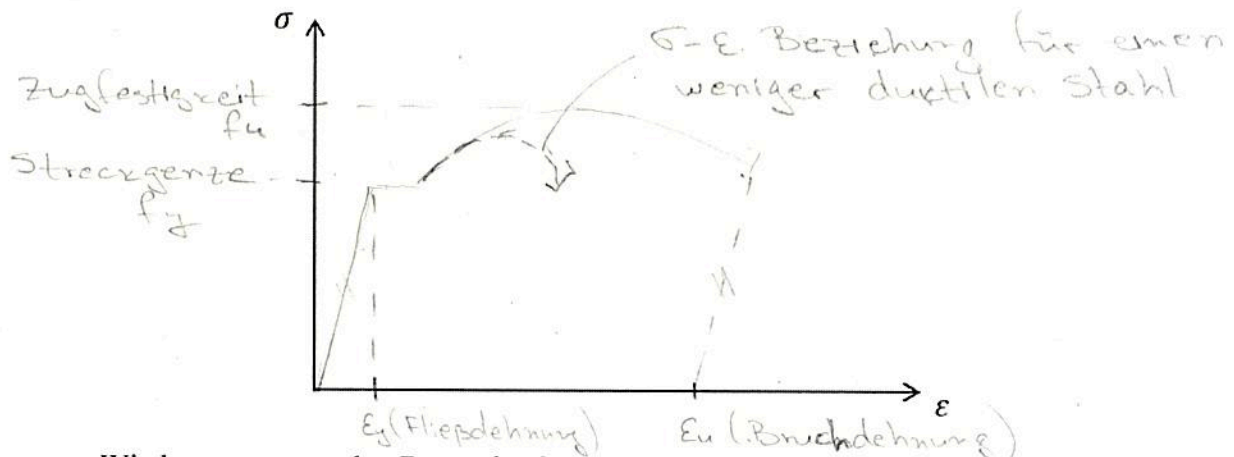 σ
σ-ε Beziehung für einen
weniger duktilen Stahl
Zugfestigkeit
fu
Streckgenze
fy
ε
εy (Fließdehnung)
εu (Bruchdehnung)